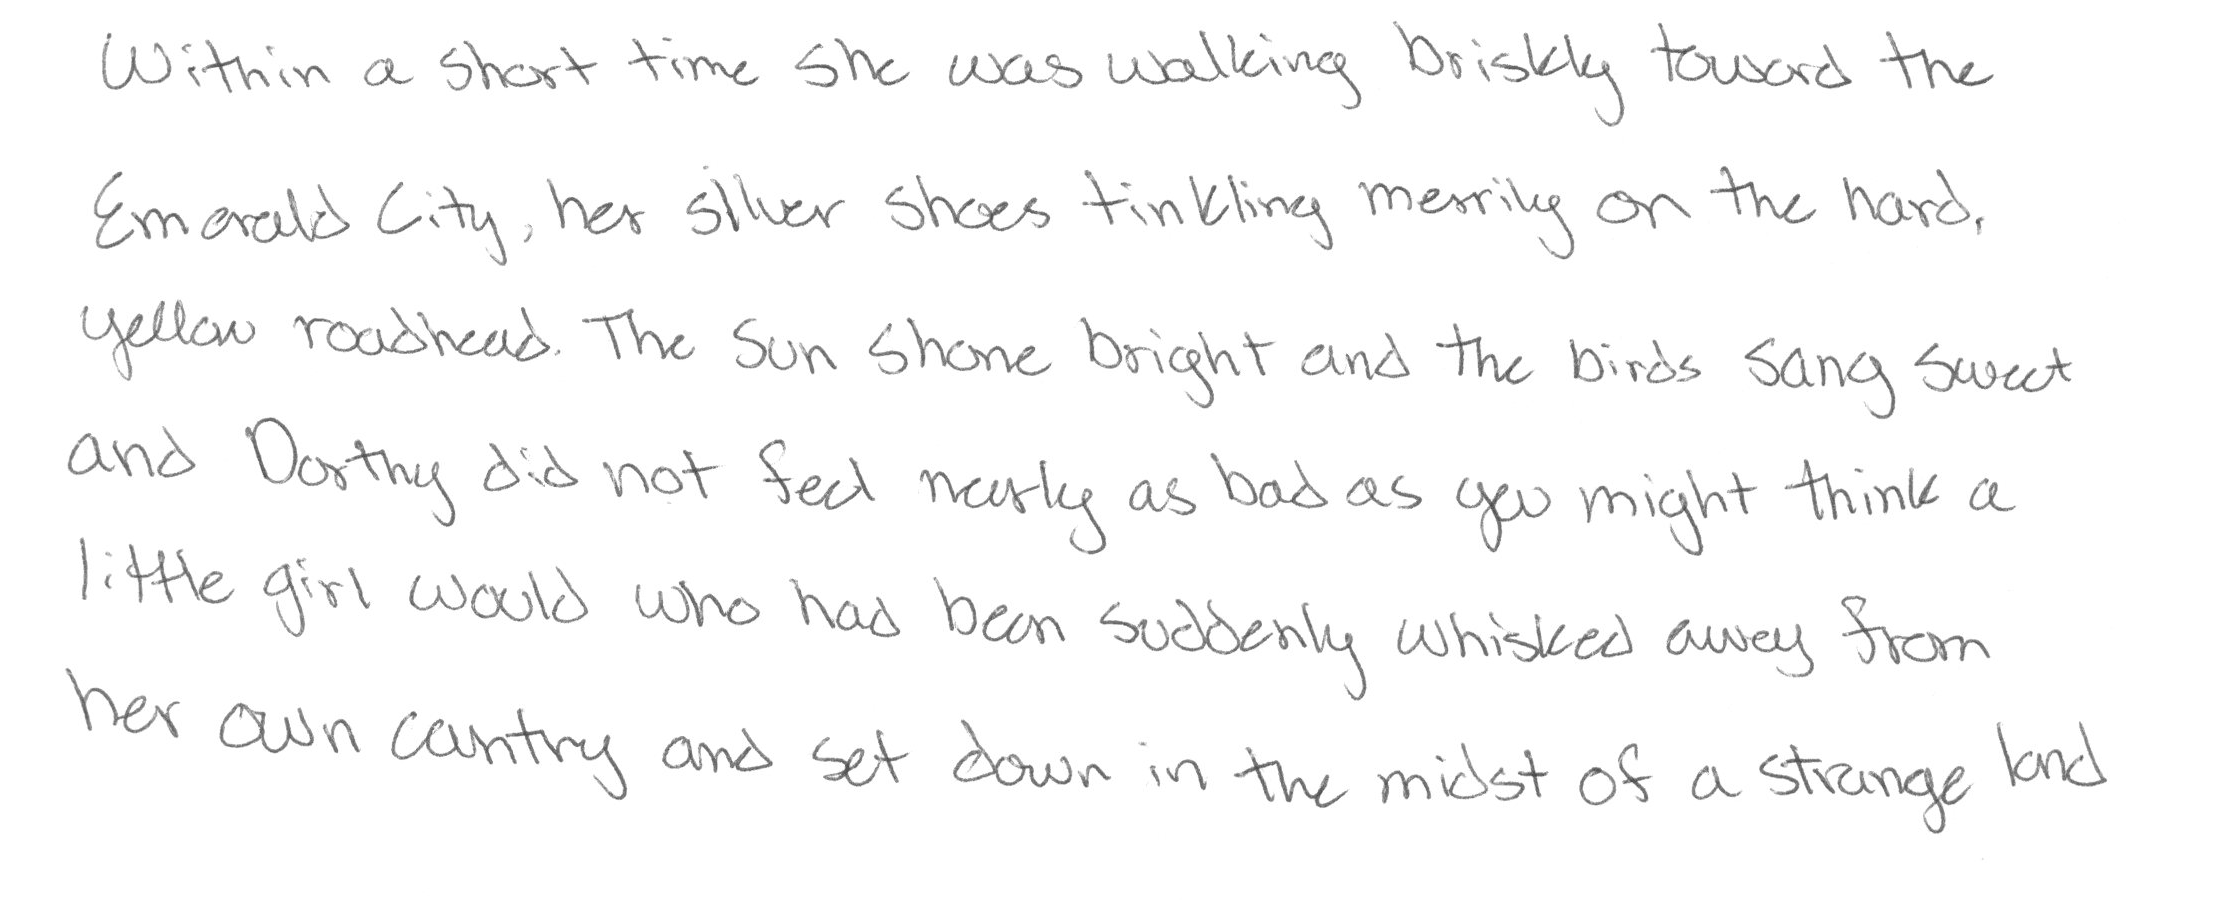 Within a short time she was walking briskly toward the
Emerald City, her silver shoes tinkling merrily on the hard,
yellow roadhead. The sun shone bright and the birds sang sweet
and Dorthy did not feel nearly as bad as you might think a
little girl would who had been suddenly whisked away from
her own country and set down in the midst of a strange land